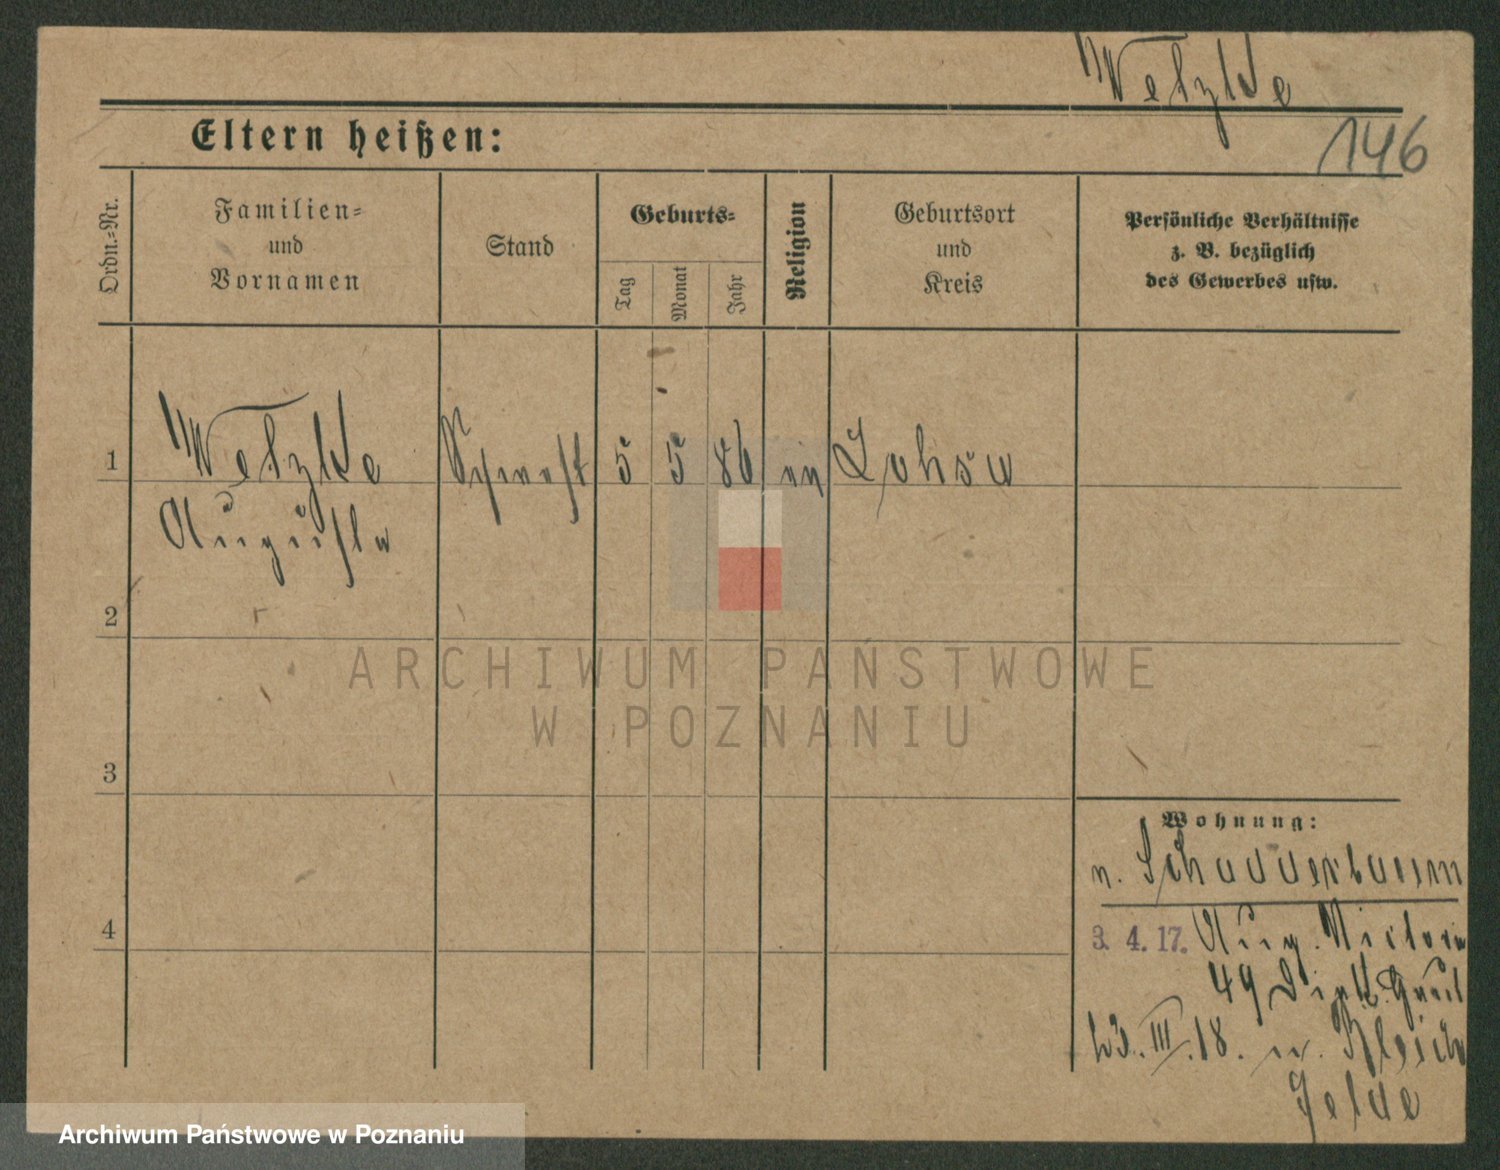 Wetzke
146
Eltern heißen:
Ordn.-Nr.
Familien-
und
Vornamen
Stand
Geburts-
Tag
Monat
Jahr
Religion
Geburtsort
und
Kreis
Persönliche Verhältnisse
z. B. bezüglich
des Gewerbes usw.
1
Wetzke
Augusta
5
5
86
Lohsa
2
3
4
ARCHIWUM PAŃSTWOWE
W POZNANIU
Wohnung:
n.
3. 4. 17. Aug. Victoria
49
23. III. 18. n.
Archiwum Państwowe w Poznaniu